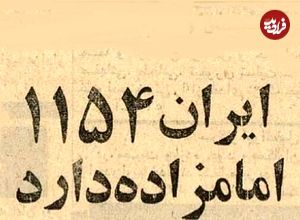 فرادید
ایران ۱۱۵۴
امامزاده دارد